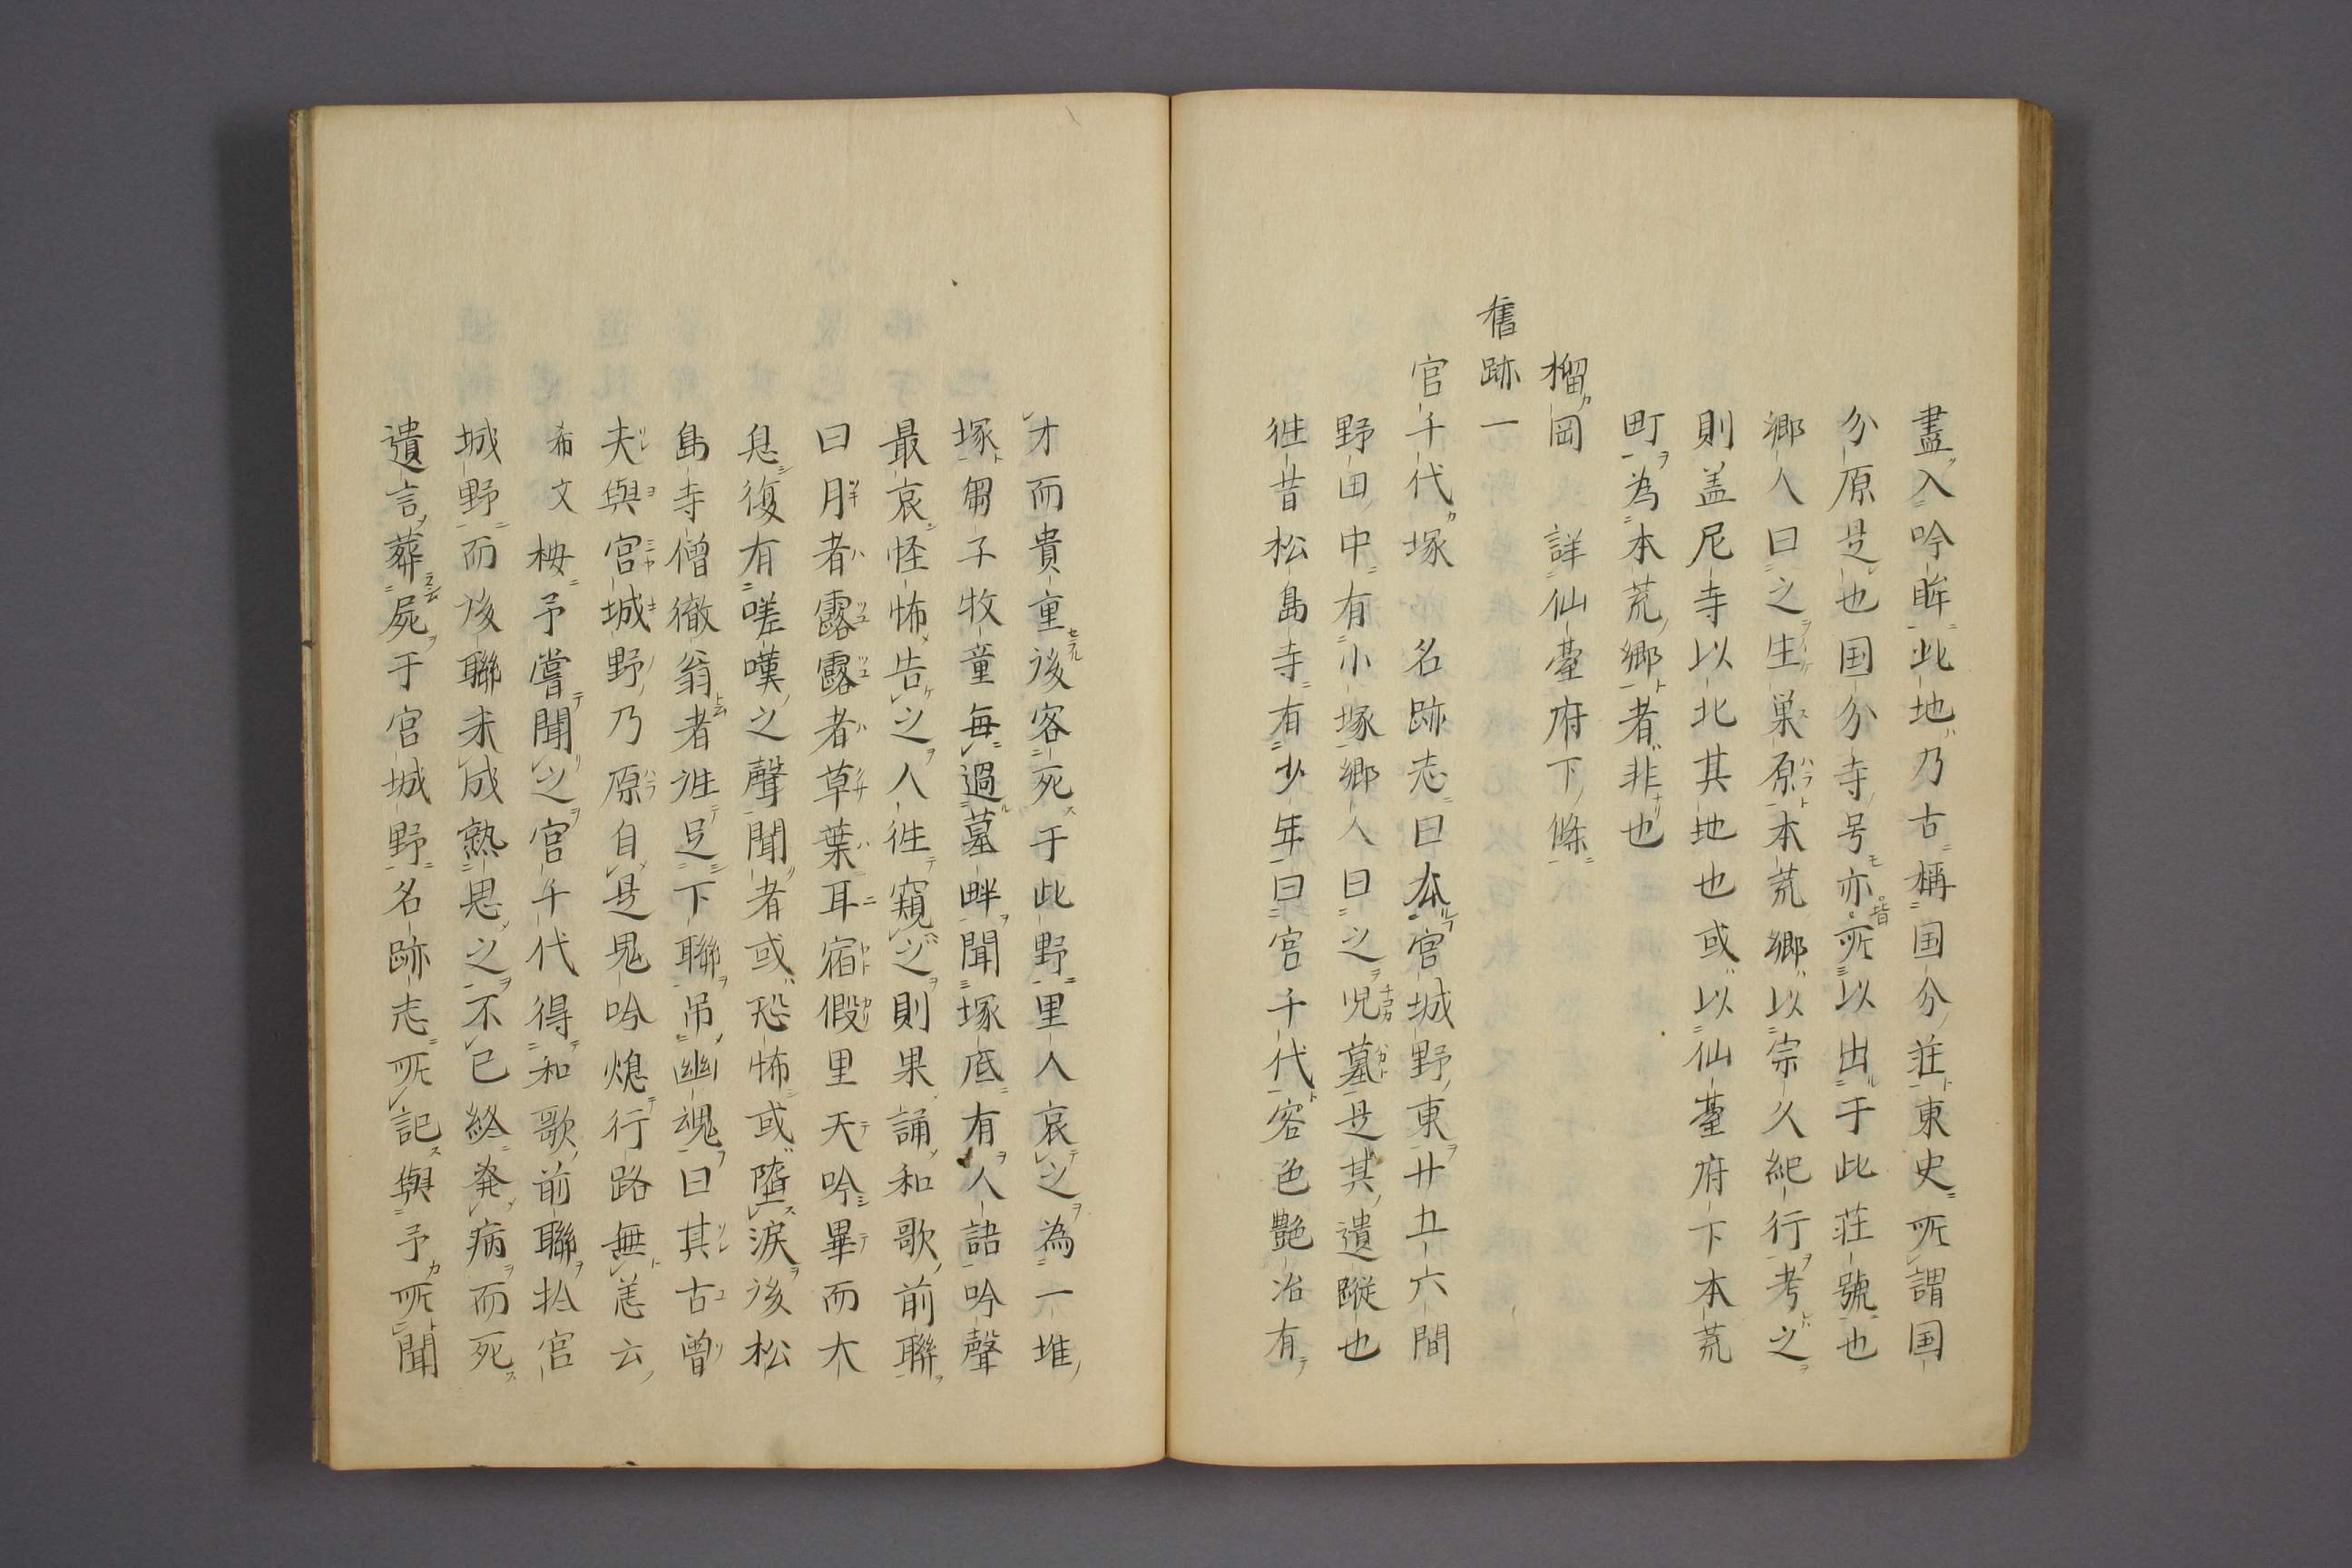 盡入吟眸此地乃古稱国分荘東史所謂国
分原是也国分寺号亦皆所以出于此荘號也
郷人曰之生巣原本荒郷以宗久紀行考之
則盖尼寺以北其地也或以仙臺府下本荒
町為本荒郷者非也
榴岡　詳仙臺府下條
舊跡一
宮千代塚　名跡志曰夲宮城野東廿五六間
野田中有小塚郷人曰之児墓是其遺蹤也
徃昔松島寺有少年曰宮千代容色艶冶有
才而貴重後客死于此野里人哀之為一堆
塚芻子牧童毎過墓畔聞塚底有人語吟聲
最哀怪怖告之人徃窺之則果誦和歌前聯
曰月者露露者草葉耳宿假里天吟畢而大
息復有嗟嘆之聲聞者或恐怖或墮涙後松
島寺僧徹翁者徃足下聯吊幽魂曰其古曾
夫與宮城野乃原自是鬼吟熄行路無恙云
希文按予嘗聞之宮千代得和歌前聯於宮
城野而後聯未成熟思之不已終発病而死
遺言葬屍于宮城野名跡志所記與予所聞